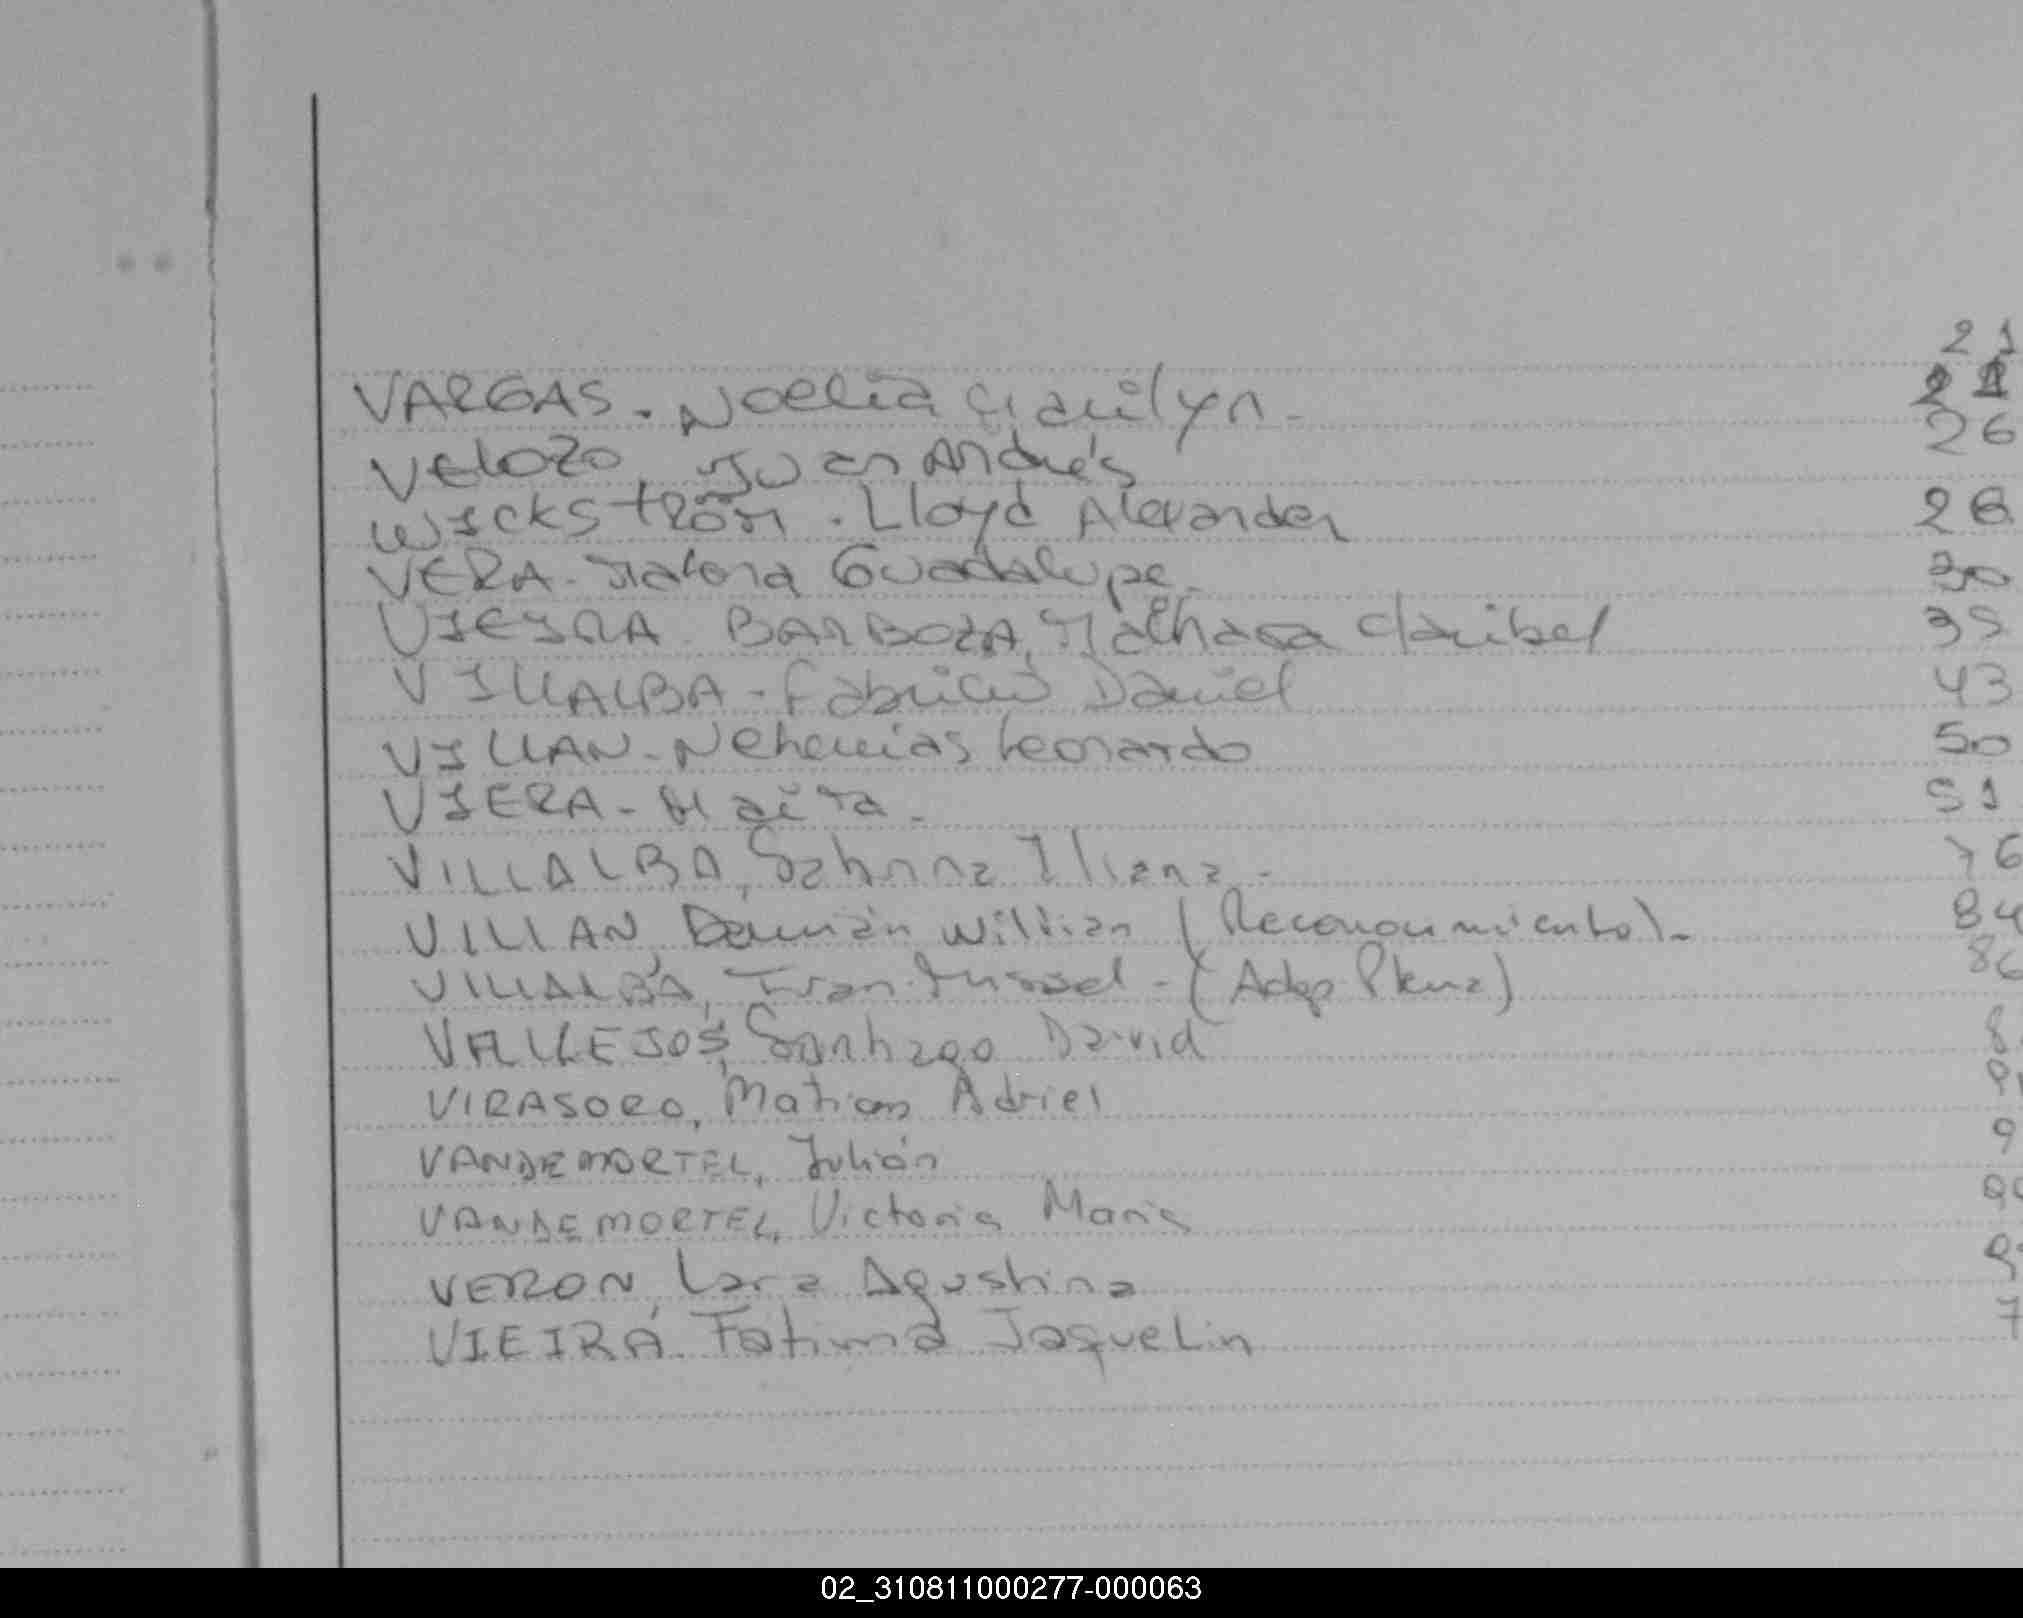 21
VARGAS. Noelia Marilyn. 21
VELOZO Juan Andrés 26
WICKSTRÖM. Lloyd Alexander 28
VERA. Malena Guadalupe. 30
VIEYRA BARBOZA, Claribel 35
VILLALBA - Fabricio Daniel 43
VILLAN - Nehemias Leonardo 50
VIERA - Maita. 51
VILLALBA, Sabrina Iliana - 76
VILLAN, Damián Willian (Reconocimiento). 84
VILLALBA, Ivan - (Adop Plena) 86
VALLEJOS, Santiago David
VIRASORO, Matias Adriel
VANDEMORTEL, Julián 9
VANDEMORTEL, Victoria Maria
VERON, Lara Agustina
VIEIRA Fatima Jaquelin 7
02_310811000277-000063